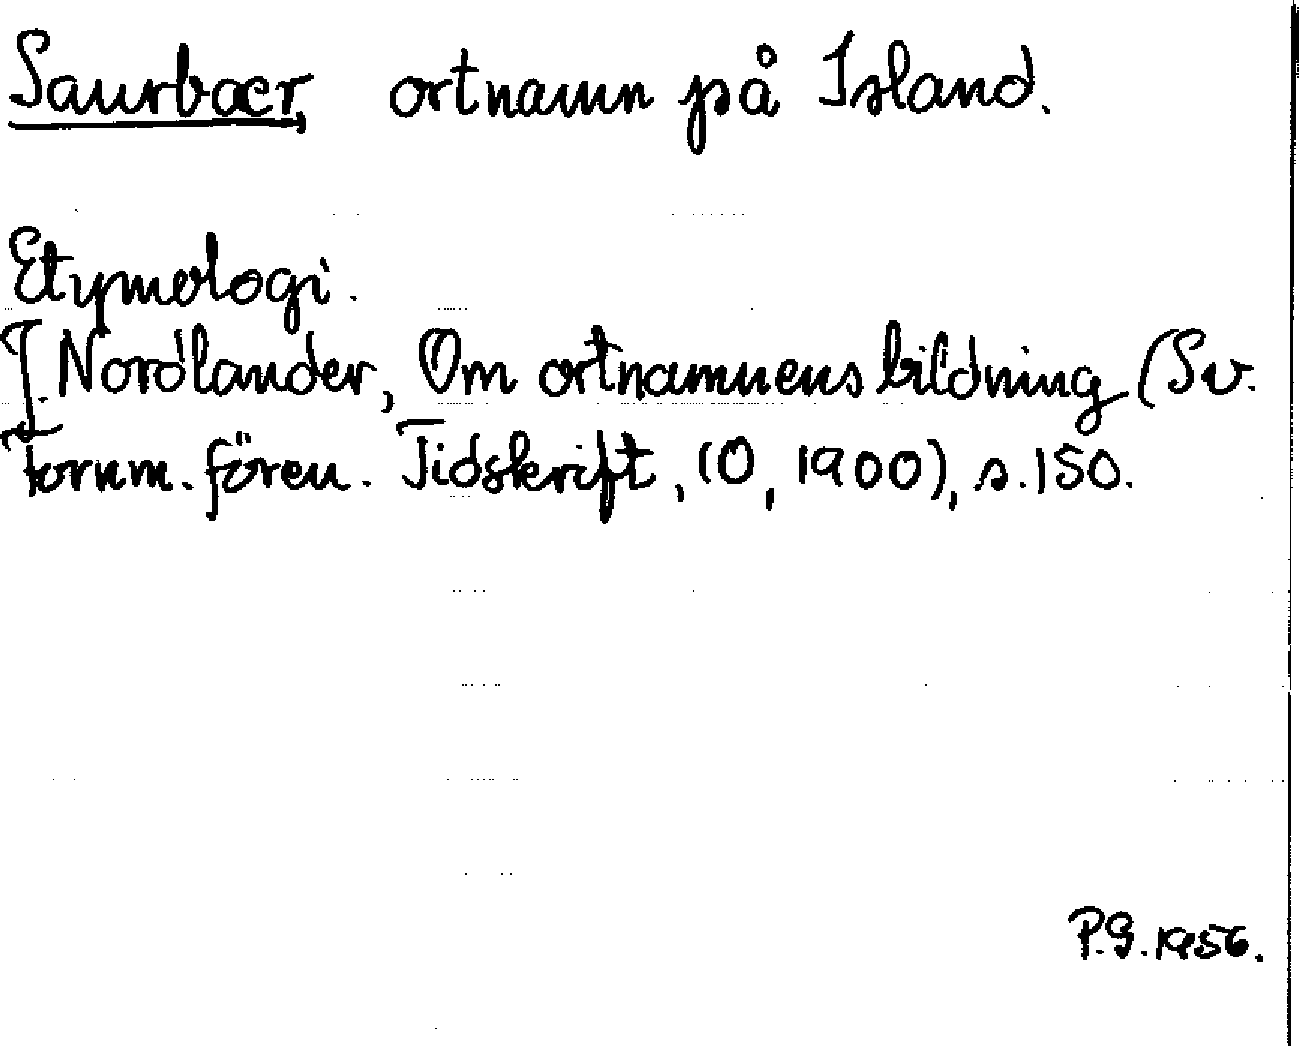 Saurbær, ortnamn på Island.
Etymologi.
J. Nordlander, Om ortnamnens bildning (Sv.
Fornm. fören. Tidskrift, 10, 1900), s. 150.
P.G. 1956.